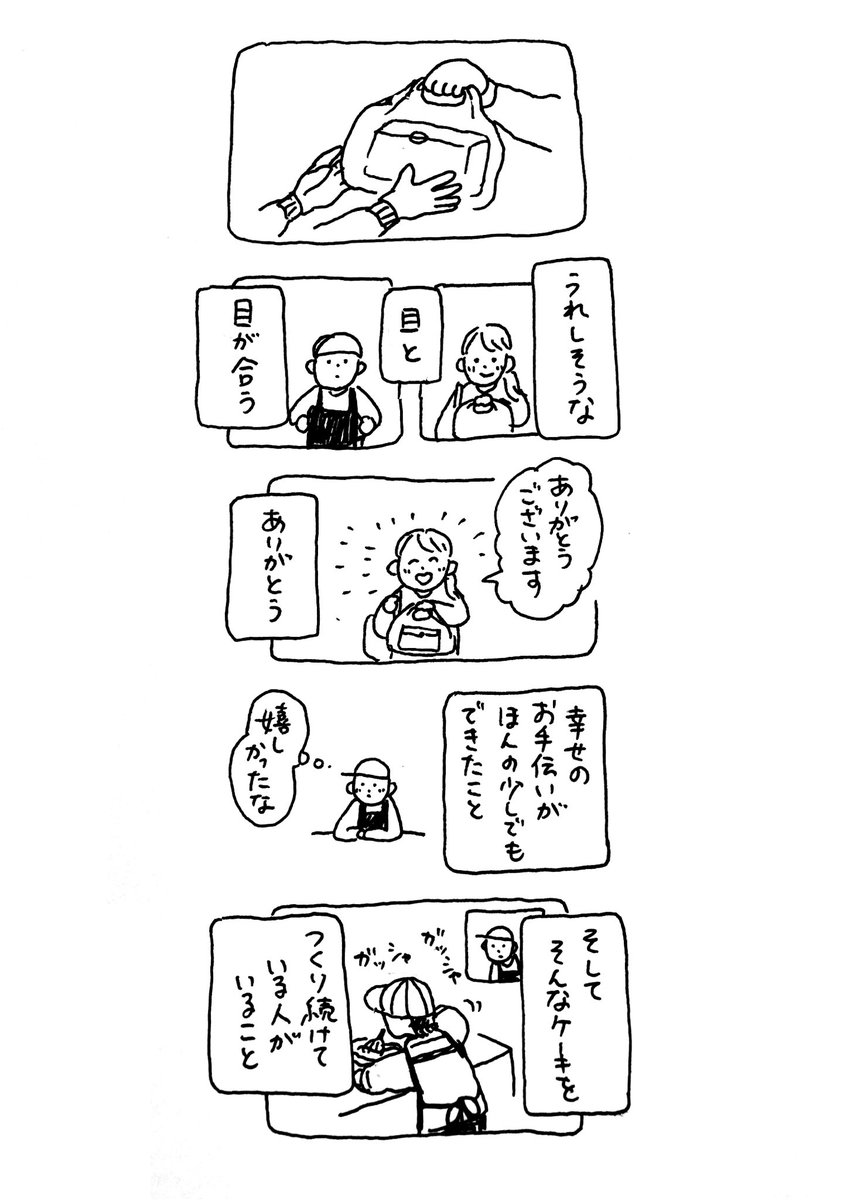 うれしそうな
目と
目が合う
ありがとう
ございます
ありがとう
幸せの
お手伝いが
ほんの少しでも
できたこと
嬉し
かったな
そして
そんなケーキを
ガッシャ
ガッシャ
つくり続けて
いる人が
いること